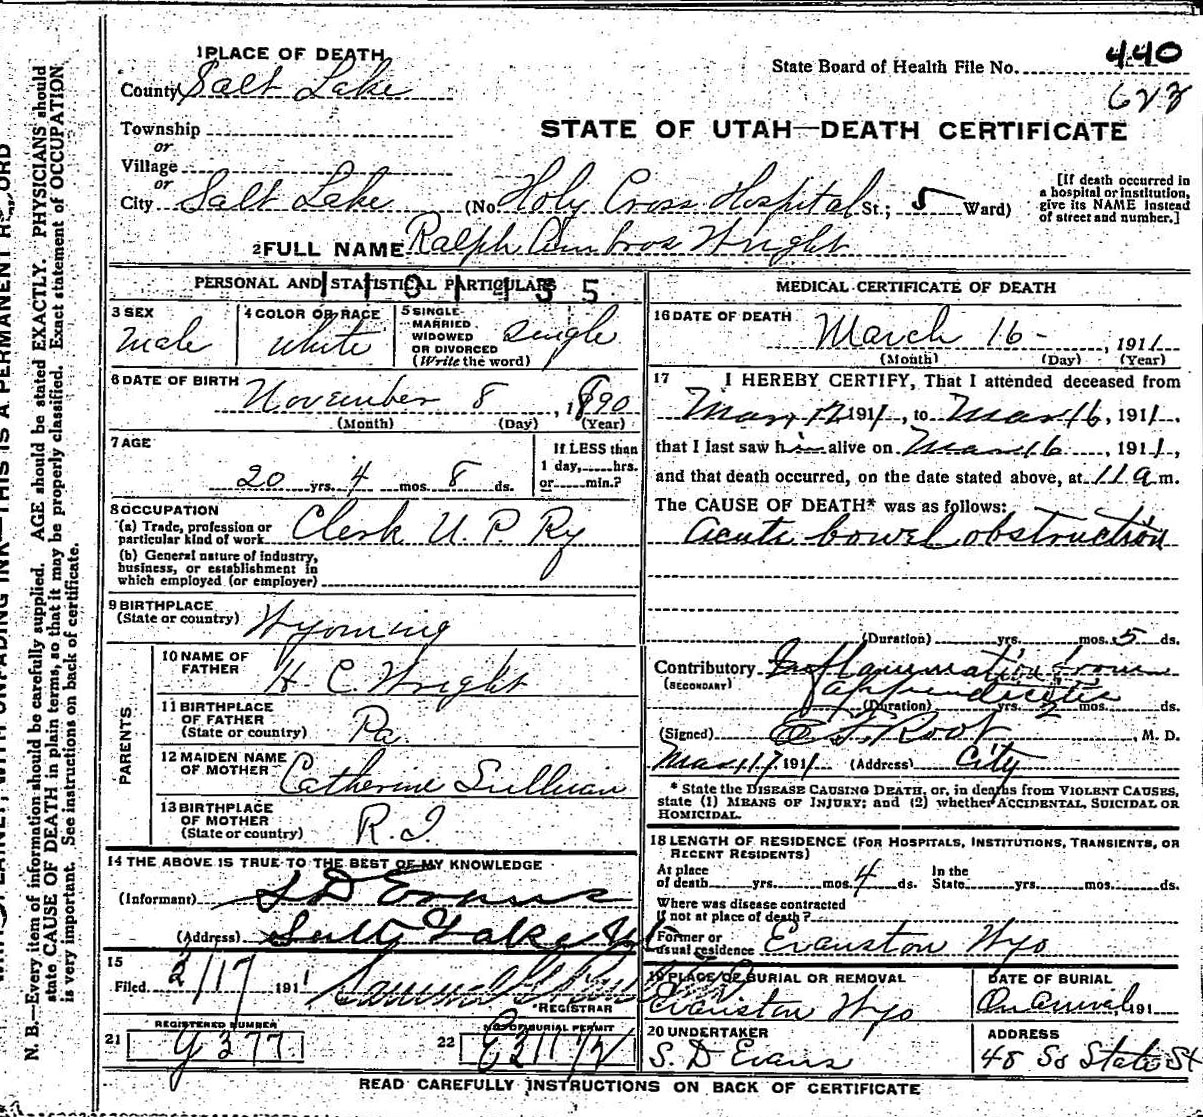 1 PLACE OF DEATH
County Salt Lake
State Board of Health File No. 440
Township
or
Village
or
STATE OF UTAH—DEATH CERTIFICATE
City Salt Lake (No. Holy Cross Hospital St.; 5 Ward)
[If death occurred in
a hospital or institution,
give its NAME instead
of street and number.]
2 FULL NAME Ralph Ambros Wright
PERSONAL AND STATISTICAL PARTICULARS
3 SEX
Male
4 COLOR OR RACE
White
5 SINGLE
MARRIED
WIDOWED
OR DIVORCED
(Write the word)
Single
6 DATE OF BIRTH
November 8, 1890
(Month) (Day) (Year)
7 AGE
20 yrs. 4 mos. 8 ds.
If LESS than
1 day, hrs.
or min.?
8 OCCUPATION
(a) Trade, profession or
particular kind of work Clerk U. P. Ry
(b) General nature of industry,
business, or establishment in
which employed (or employer)
9 BIRTHPLACE
(State or country)
Wyoming
PARENTS
10 NAME OF
FATHER
H. C. Wright
11 BIRTHPLACE
OF FATHER
(State or country)
Pa.
12 MAIDEN NAME
OF MOTHER
Catherine Sullivan
13 BIRTHPLACE
OF MOTHER
(State or country)
R. I.
14 THE ABOVE IS TRUE TO THE BEST OF MY KNOWLEDGE
(Informant) S D Evans
(Address) Salt Lake
15
Filed 2/17 1911
REGISTRAR
REGISTERED NUMBER
21 G 377
NO. OF BURIAL PERMIT
22
MEDICAL CERTIFICATE OF DEATH
16 DATE OF DEATH
March 16 - , 1911
(Month) (Day) (Year)
17 I HEREBY CERTIFY, That I attended deceased from
Mar 12 1911, to Mar 16, 1911,
that I last saw him alive on Mar 16, 1911,
and that death occurred, on the date stated above, at 11 a m.
The CAUSE OF DEATH* was as follows:
Acute bowel obstruction
(Duration) yrs. mos. 5 ds.
Contributory Inflammation from
(SECONDARY) appendicitis
(Duration) yrs. 2 mos. ds.
(Signed) E. F. Root, M. D.
Mar 17 1911 (Address) City
* State the DISEASE CAUSING DEATH, or, in deaths from VIOLENT CAUSES,
state (1) MEANS OF INJURY; and (2) whether ACCIDENTAL, SUICIDAL OR
HOMICIDAL.
18 LENGTH OF RESIDENCE (FOR HOSPITALS, INSTITUTIONS, TRANSIENTS, OR
RECENT RESIDENTS)
At place
of death yrs. mos. 4 ds. In the
State yrs. mos. ds.
Where was disease contracted
if not at place of death?
Former or
usual residence Evanston Wyo
19 PLACE OF BURIAL OR REMOVAL
Evanston Wyo
DATE OF BURIAL
On arrival, 191
20 UNDERTAKER
S. D Evans
ADDRESS
48 So State St
READ CAREFULLY INSTRUCTIONS ON BACK OF CERTIFICATE
N. B.—Every item of information should be carefully supplied. AGE should be stated EXACTLY. PHYSICIANS should
state CAUSE OF DEATH in plain terms, so that it may be properly classified. Exact statement of OCCUPATION
is very important. See instructions on back of certificate.